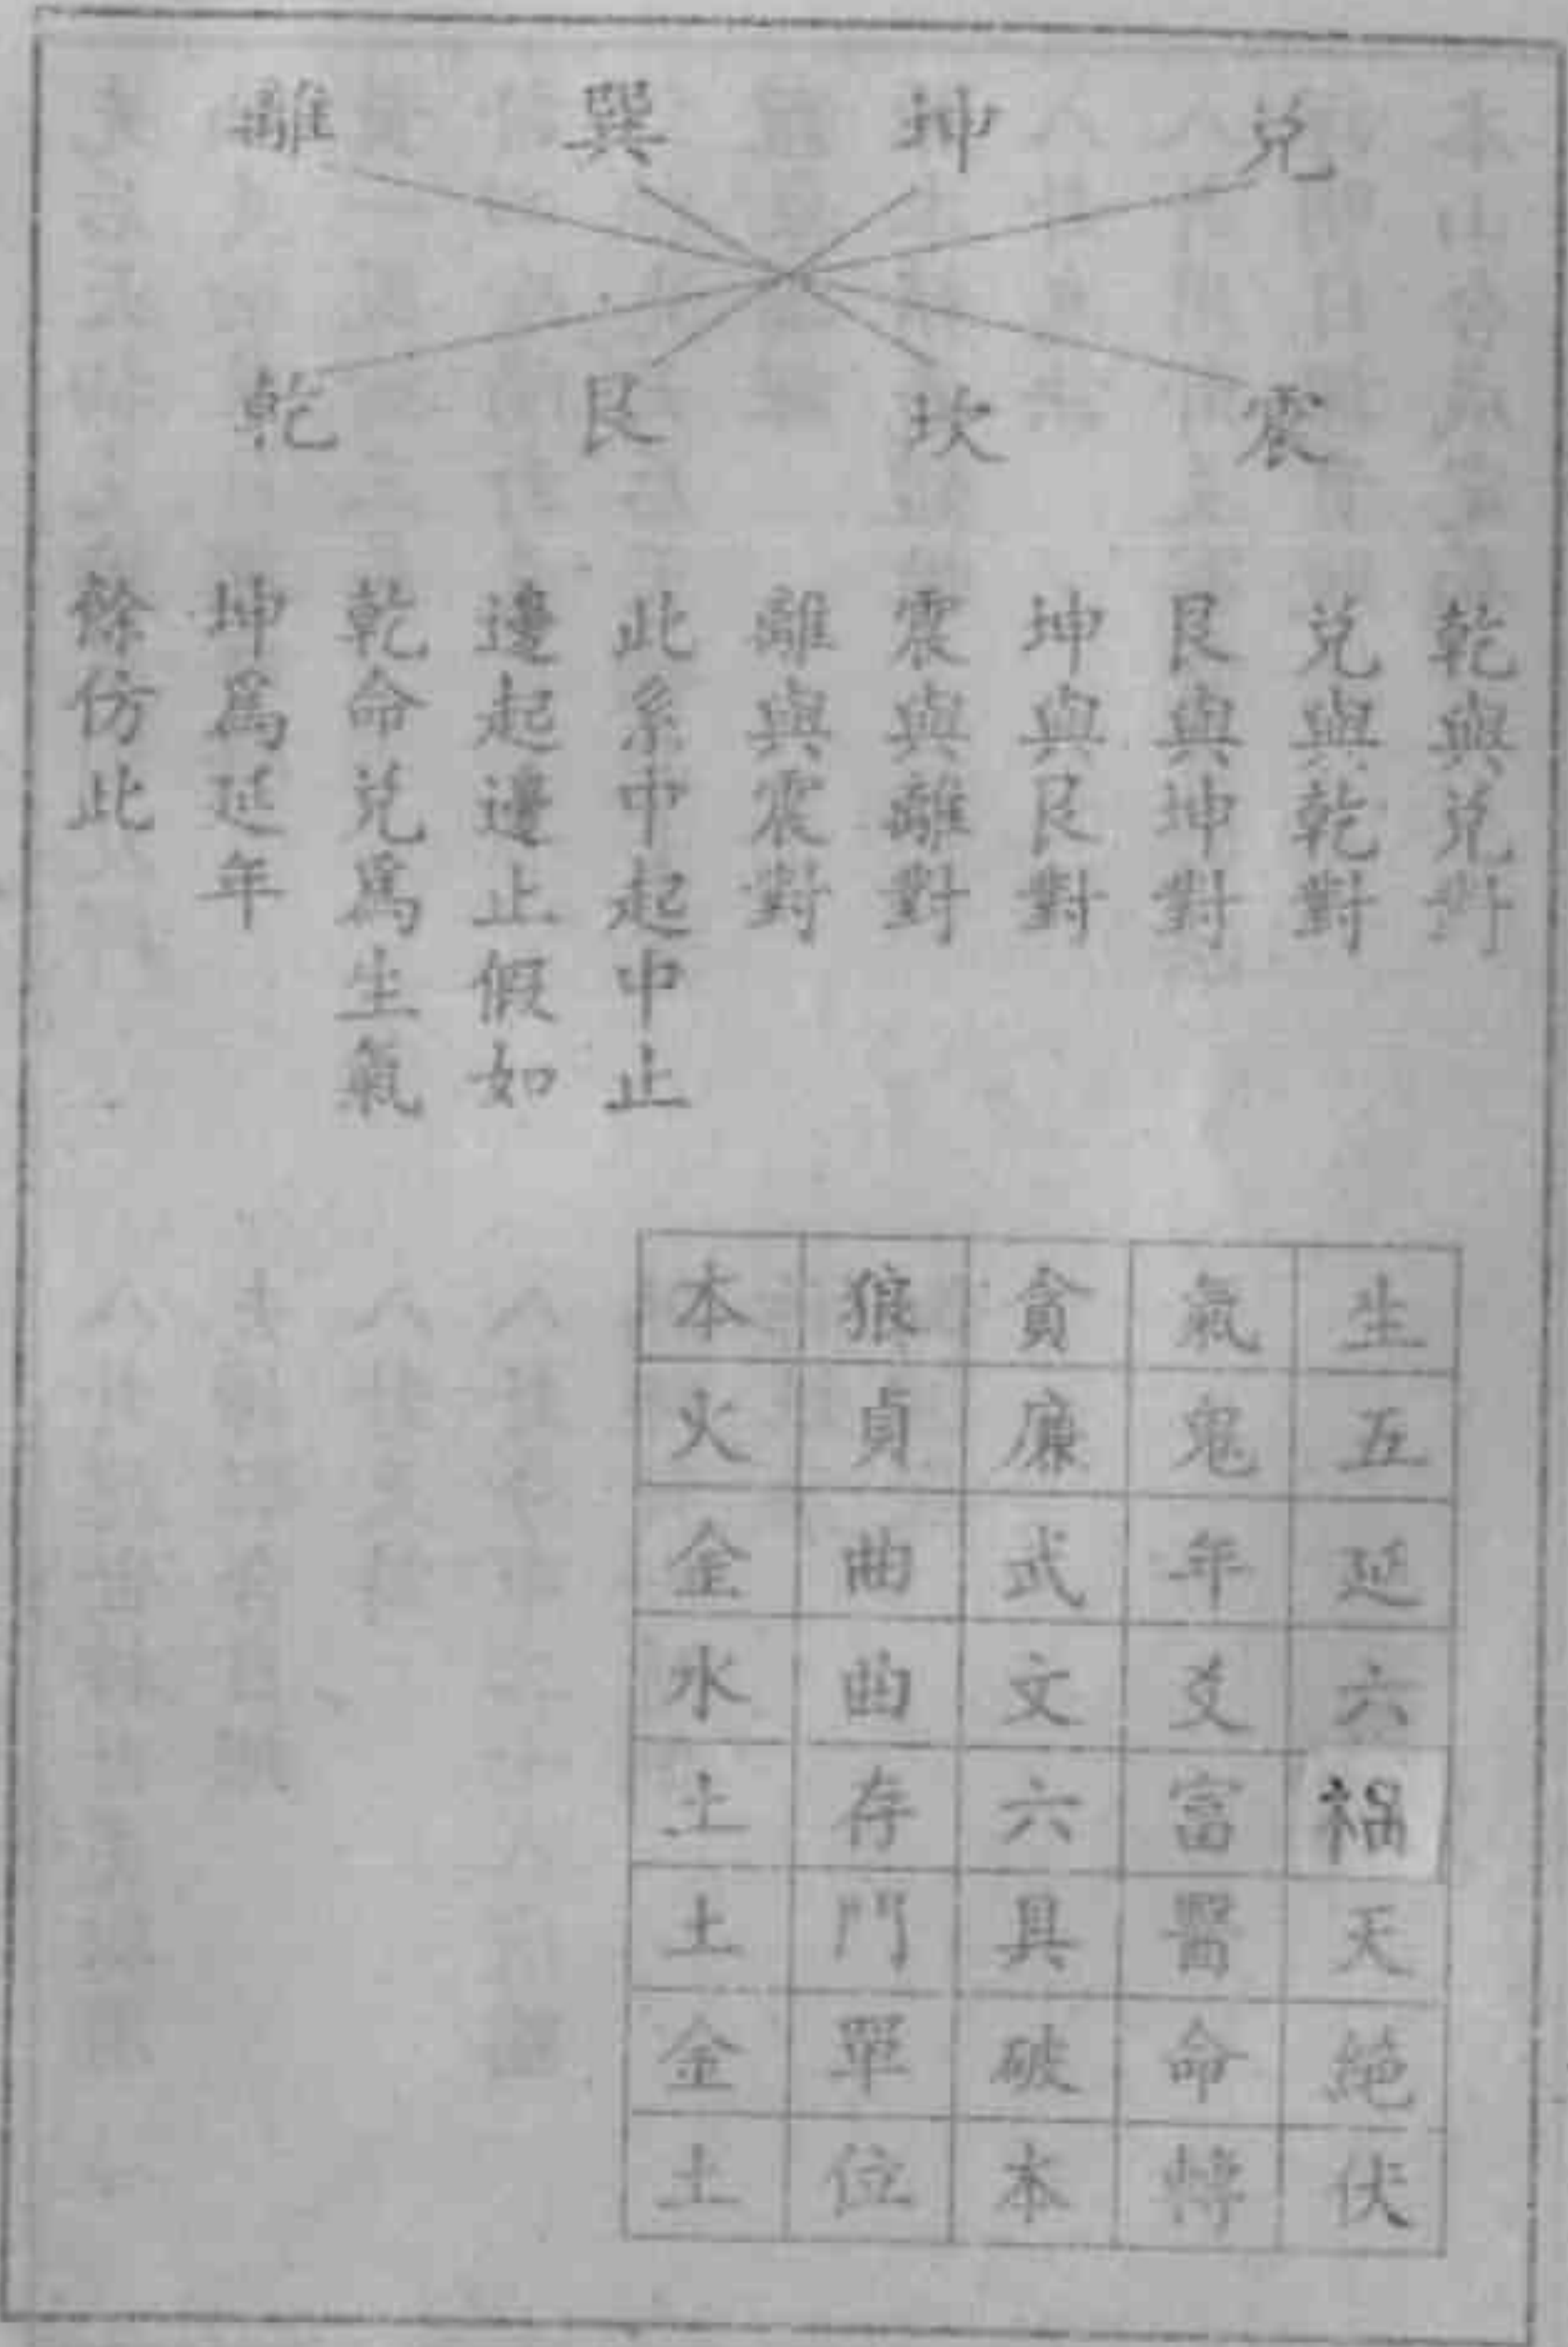 離 巽 坤 兑
乾 艮 坎 震
乾與兑對
兑與乾對
艮與坤對
坤與艮對
震與離對
離與震對
此系中起中止
邊起邊止假如
乾命兑爲生氣
坤爲延年
餘仿此
生氣貪狼本
五鬼廉貞火
延年武曲金
六爻文曲水
禍富六存土
天醫具門土
絕命破單金
伏轉本位土